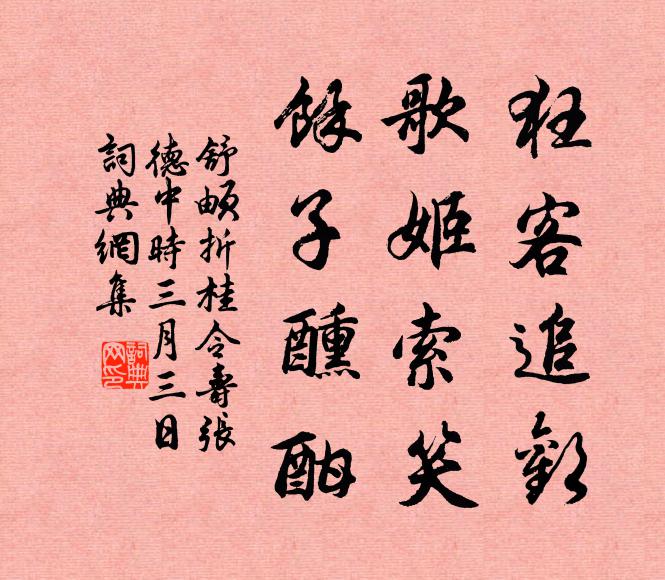 狂客追歡
歌姬索笑
餘子醺酣
舒頔折桂令壽張
德中時三月三日
詞典網集
詞典
网印